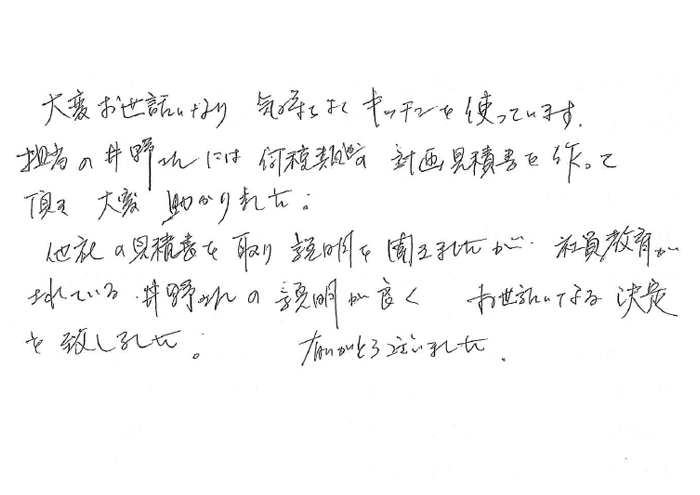 大変お世話になり 気持ちよく キッチンを 使っています.
担当の井野さんには 何種類もの 計画見積書を 作って
頂き 大変 助かりました。
他社の見積書を 取り 説明を 聞きましたが. 社員教育が
されている 井野さんの 説明が 良く お世話になる 決定
を 致しました。 ありがとうございました.